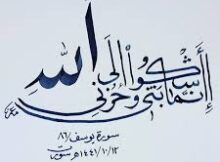 إنما أشكوا بثي وحزني إلى الله
سورة يوسف/٨٦
١٤٤١/١٠/١٢هـ سويرت